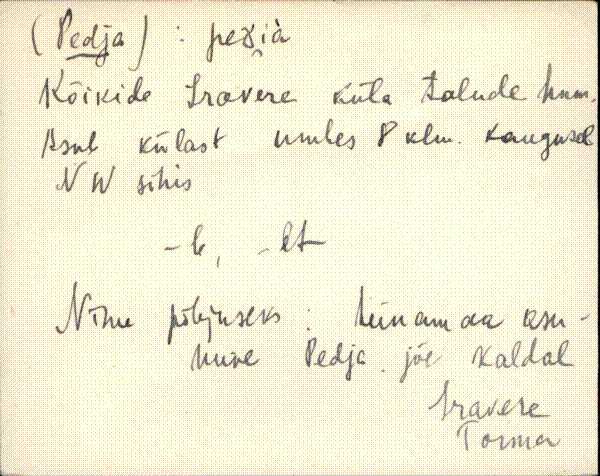 (Pedja) : peᴣ̆ià
Kõikide Iravere küla talude hnm.
Asub külast umbes 8 klm. kaugusel
NW sihis
-l, -lt
Nime põhjuseks: heinamaa asu-
mine Pedja jõe kaldal
Iravere
Torma